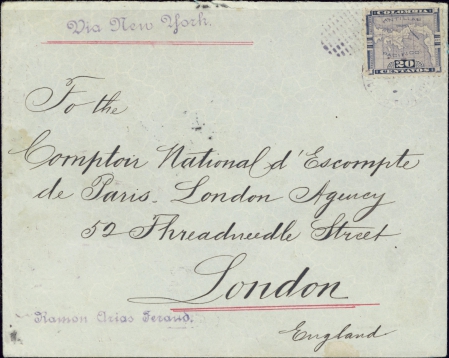 Via New York.
COLOMBIA
20
CENTAVOS
To the
Comptoir National d'Escompte
de Paris. London Agency
52 Threadneedle Street
London
Ramon Arias Feraud.
England